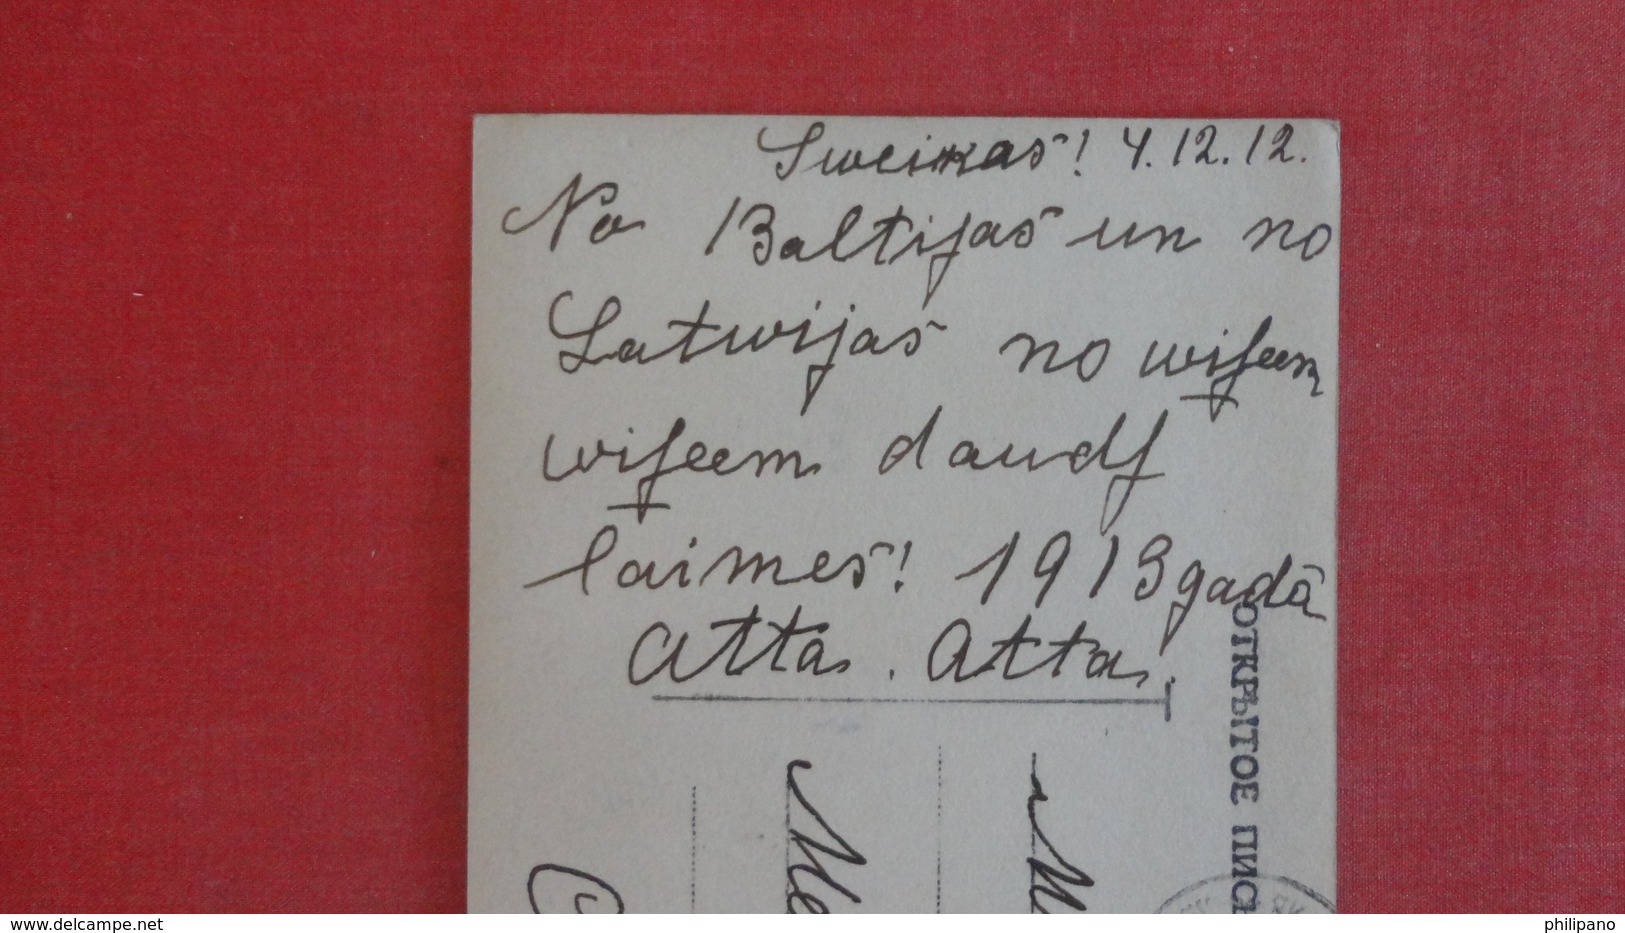 Sweikas! 4.12.12.
No Baltijas un no
Latwijas no wiſeem
wiſeem daudſ
laimes! 1913 gadā
Atta. Atta.
ОТКРЫТОЕ ПИСЬ
www.delcampe.net
philipano